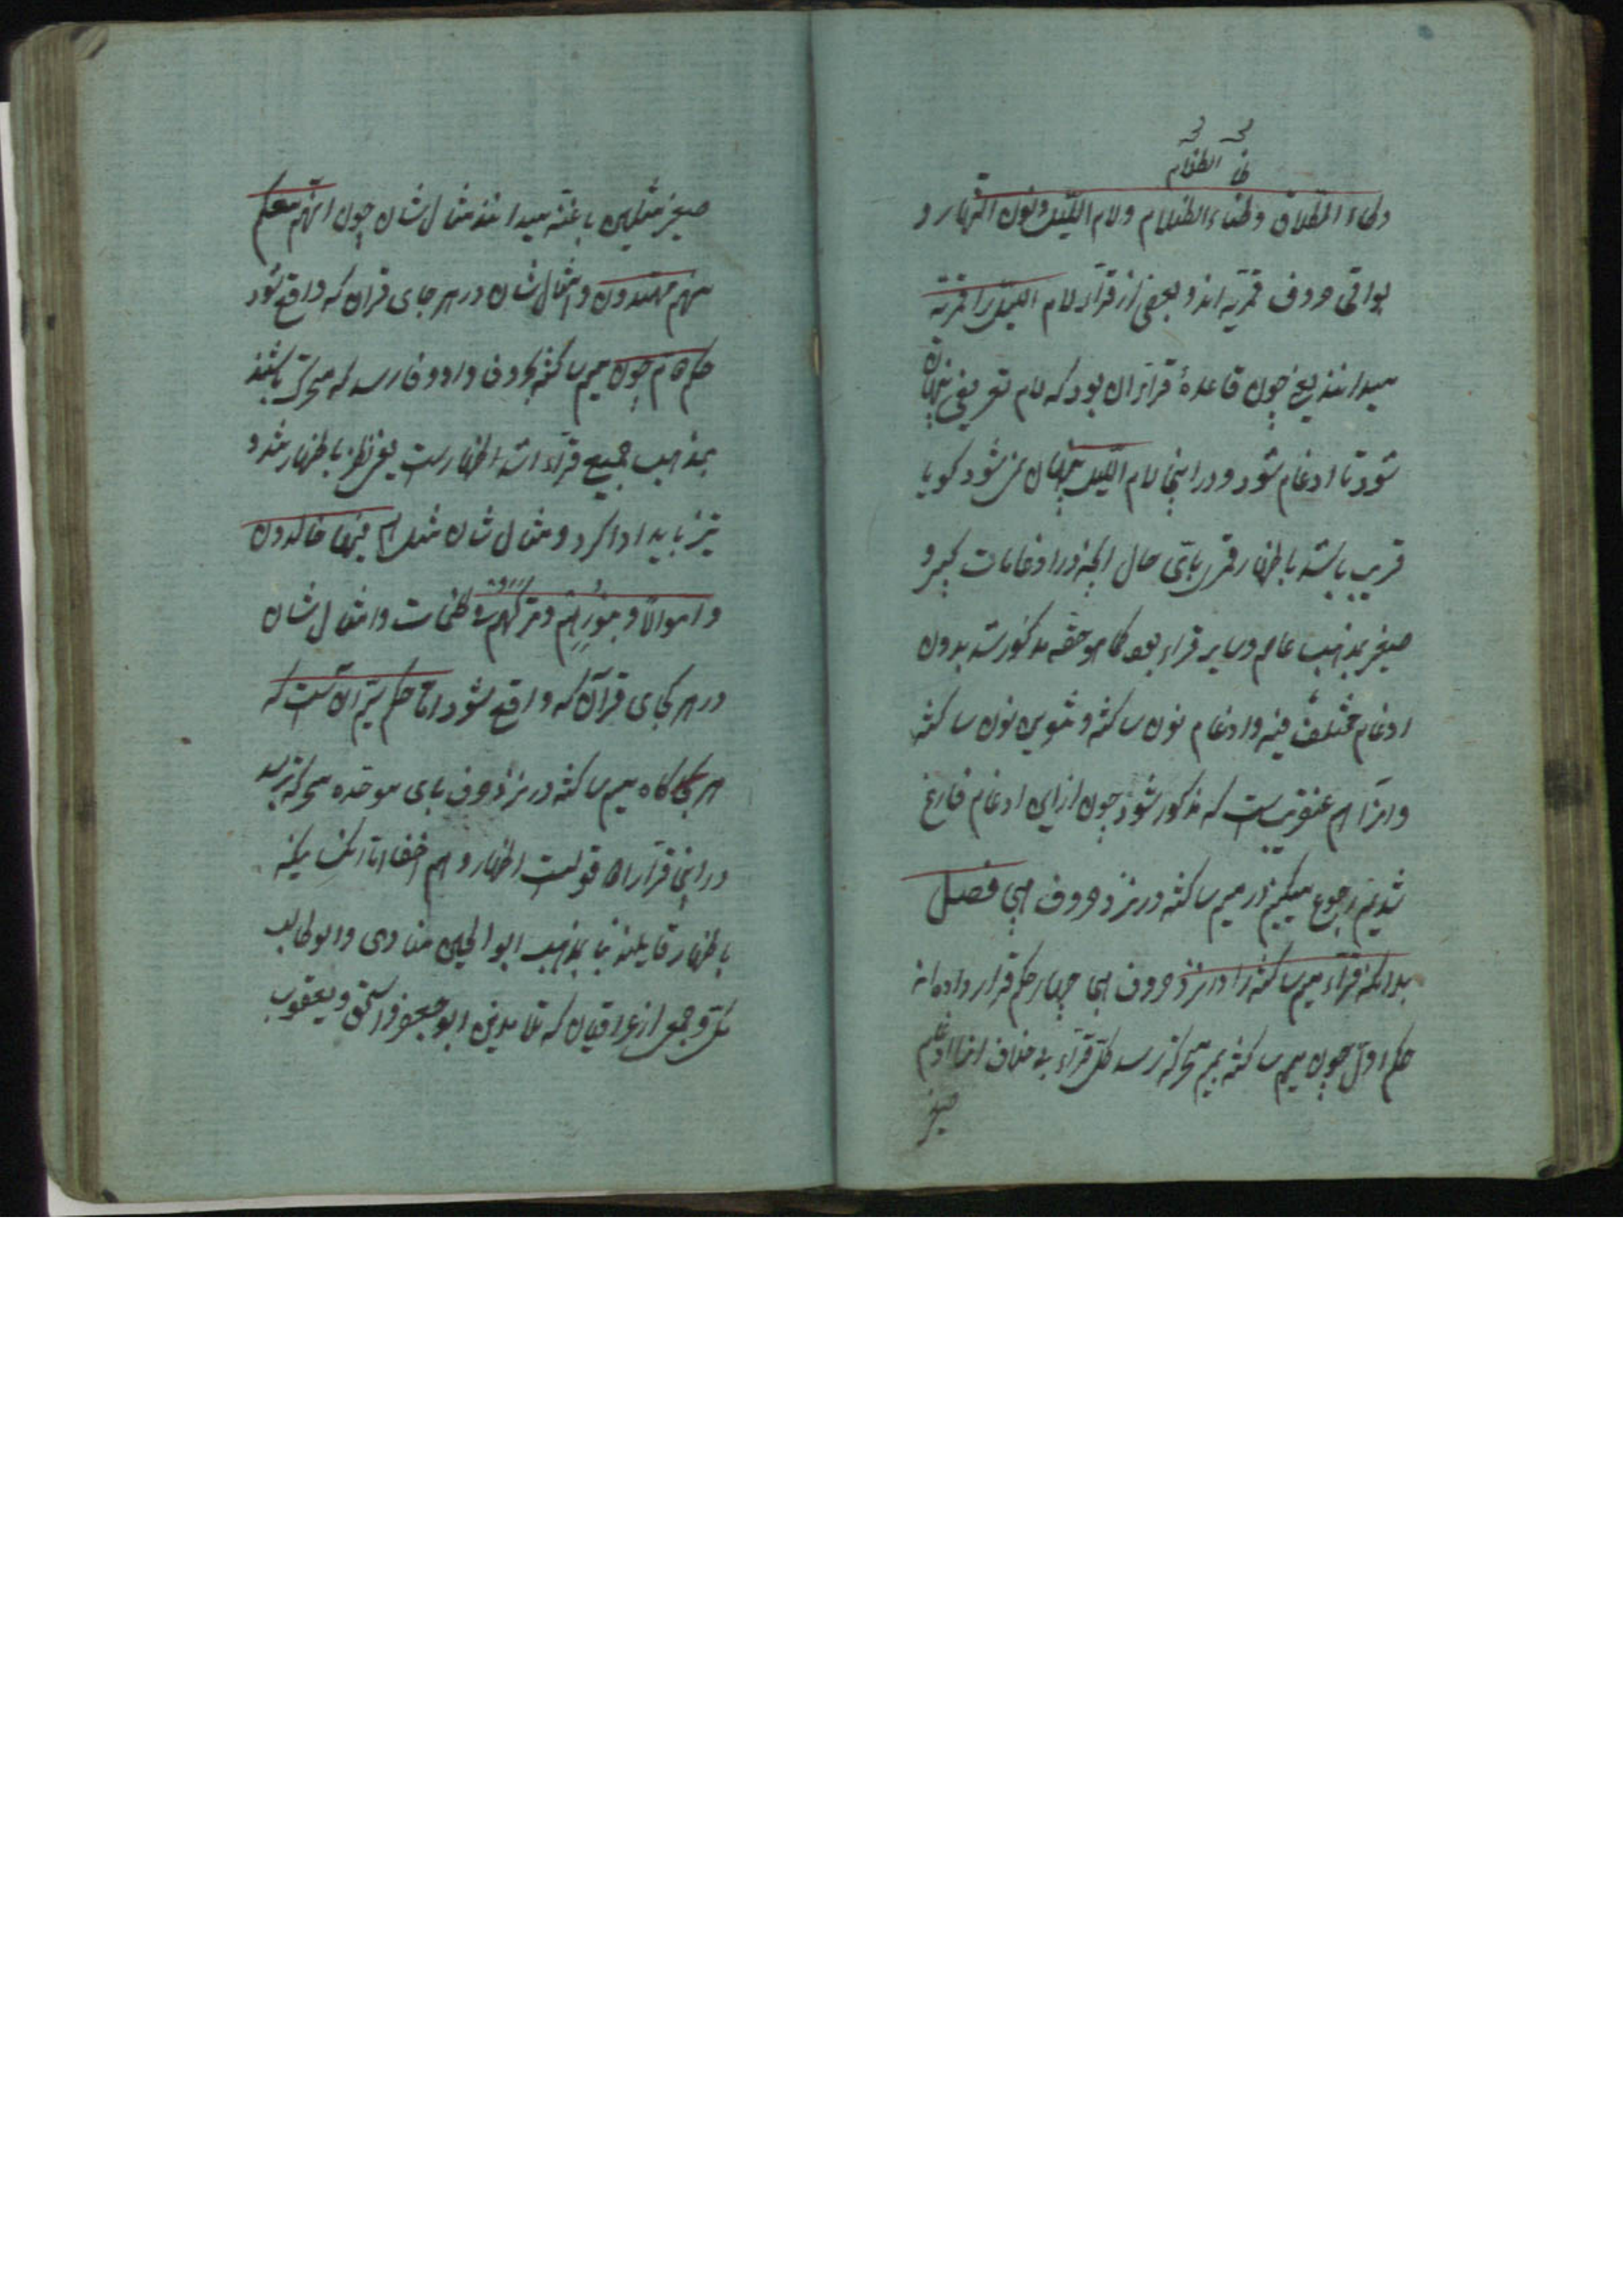 ظا الظلام
وطاء الطلاق وظاء الظلام ولام اللیل ونون النهار و
بواقی حروف قمریه اند و بعضی از قراء لام اللیل را قمریه
میدانند یعنی چون قاعدهٔ قراء آن بود که لام تعریف پنهان
شود تا ادغام شود و در اینجا لام اللیل پنهان نمی شود کویا
قریب باشد باظهار قمر باقی حال آنچه در ادغامات کبیر و
صغیر بمذهب عاصم و سایر قراء بود کما هو حقه مذکور شد بدون
ادغام مختلف فیه و ادغام نون ساکنه و تنوین نون ساکنه
و هم عنقریبست که مذکور شود چون از این ادغام فارغ
شدیم رجوع میکنیم در میم ساکنه در نزد حروف تهجی فصل
بدانکه قراء میم ساکنه را در نزد حروف تهجی چهار حکم قرار داده اند
حکم اول چون میم ساکنه بمیم متحرکه رسد کل قراء بی خلاف آنرا ادغام
صغیر
صغیر مثلین با غنه میدانند مثال شان چون انهم معکم
منهم مهتدون و امثال شان در هر جای قران که واقع شود
حکم دوم چون میم ساکنه بحروف واو و فا رسد که متحرک باشند
بمذهب جمیع قراء اشد اظهار است یعنی باظهار شد و
تیز باید ادا کرد و مثال شان مثل هم فیها خالدون
و امواتا و یمدهم و ترکهم فی ظلمات و امثال شان
در هر کجای قرآن که واقع شود اما حکم سیم آن است که
هر کاه میم ساکنه در نزد حرف بای موحده متحرکه برسد
در اینجا قراء را دو قولست اظهار و هم اخفا اما آنکسانیکه
باظهار قایلند بنا بمذهب ابو الحسین منادی و ابو طالب
مکی و جمعی از عراقیان که تلامیذ ابو جعفر و اسحق و یعقوب